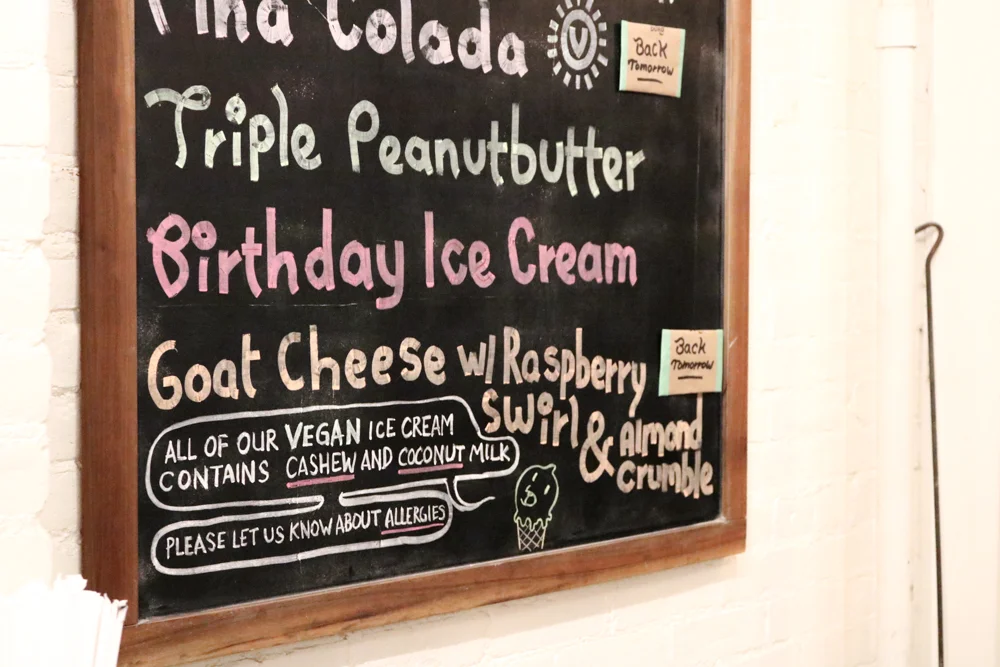 Pina Colada V
Back
Tomorrow
Triple Peanutbutter
Birthday Ice Cream
Goat Cheese w/ Raspberry
Swirl & Almond
Crumble
Back
Tomorrow
ALL OF OUR VEGAN ICE CREAM
CONTAINS CASHEW AND COCONUT MILK
PLEASE LET US KNOW ABOUT ALLERGIES